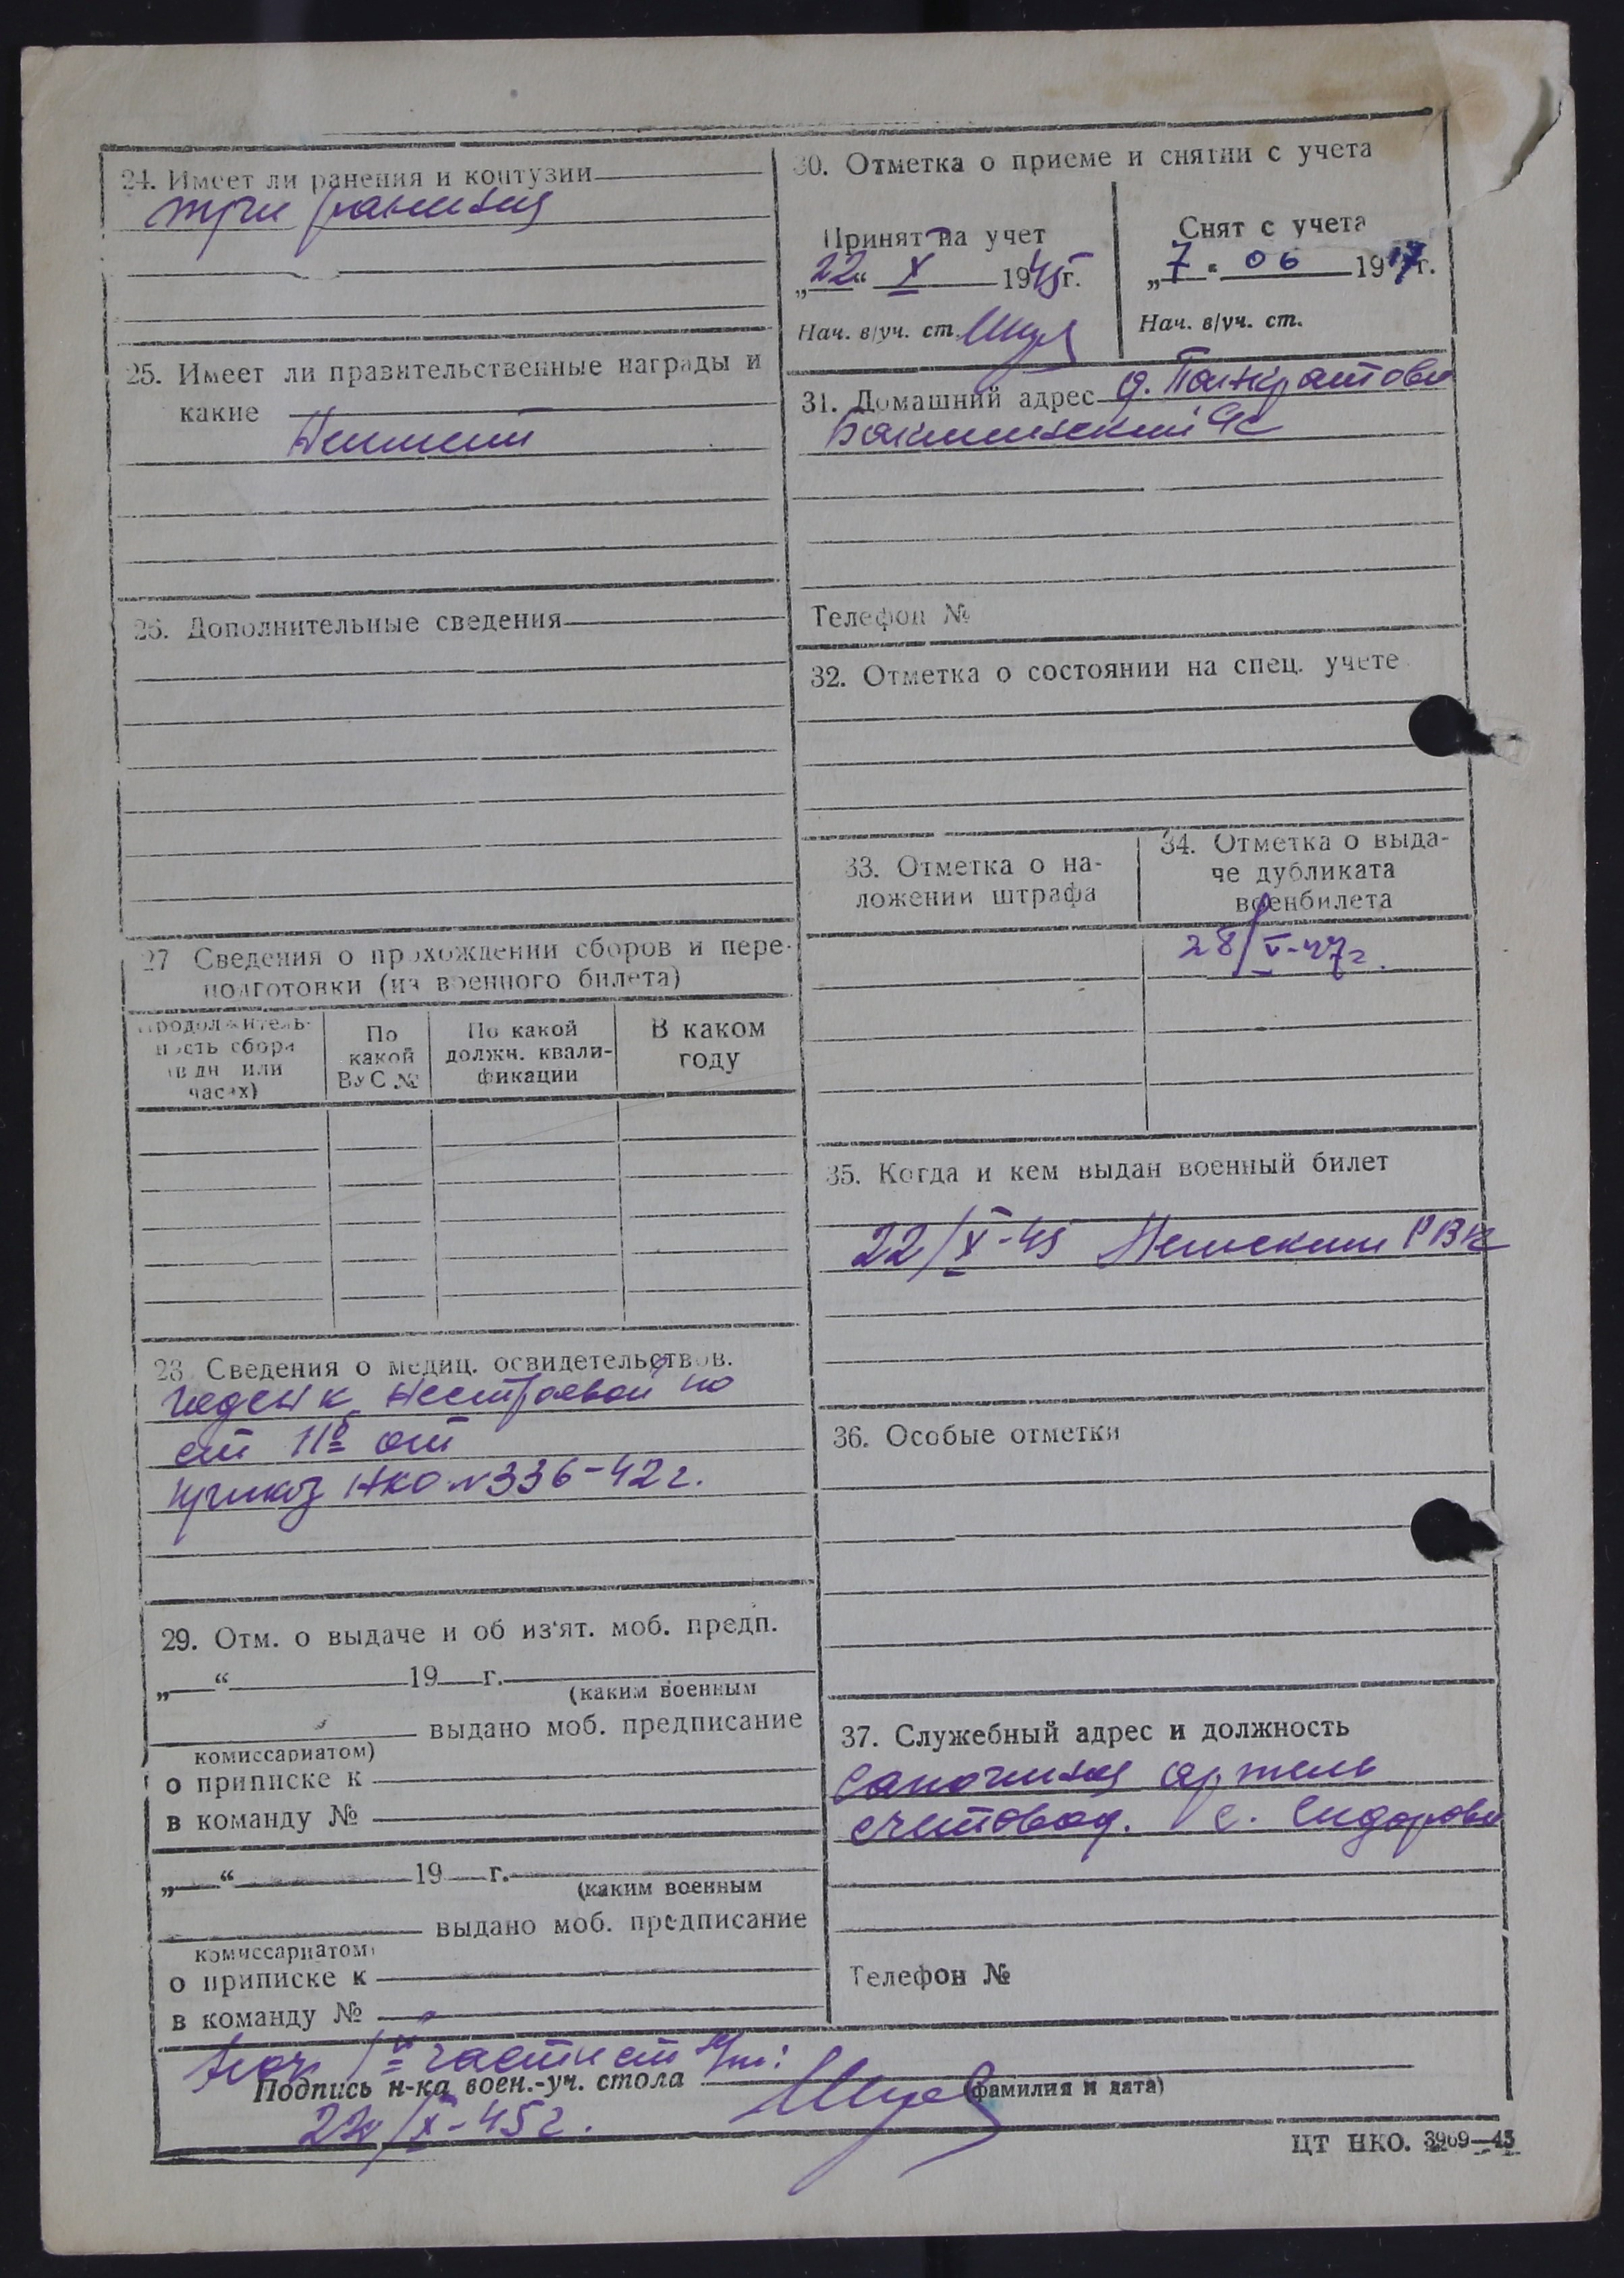 24. Имеет ли ранения и контузии
три ранения
25. Имеет ли правительственные награды и
какие
Неимеет
26. Дополнительные сведения
27 Сведения о прохождении сборов и пере-
подготовки (из военного билета)
Продолжитель-
ность сбора
(в дн или
часах)
По
какой
ВУС №
По какой
должн. квали-
фикации
В каком
году
28. Сведения о медиц. освидетельствов.
годен к нестроевой по
ст IIб от
приказ НКО №336-42 г.
29. Отм. о выдаче и об из'ят. моб. предп.
„ “ 19 г.
(каким военным
выдано моб. предписание
комиссариатом)
о приписке к
в команду №
„ “ 19 г.
(каким военным
выдано моб. предписание
комиссариатом)
о приписке к
в команду №
30. Отметка о приеме и снятии с учета
Принят на учет
„22“ X 1945г.
Нач. в/уч. ст.
Снят с учета
„7“ 06 1947г.
Нач. в/уч. ст.
31. Домашний адрес д. Панкратово
Телефон №
32. Отметка о состоянии на спец. учете
33. Отметка о на-
ложении штрафа
34. Отметка о выда-
че дубликата
военбилета
28/V-47г.
35. Когда и кем выдан военный билет
22/X-45 Немским РВК
36. Особые отметки
37. Служебный адрес и должность
Сапожная артель
счетовод. с. Сидорово
Телефон №
Нач I части ст л/т:
Подпись н-ка воен.-уч. стола
(фамилия и дата)
22/X-45г.
ЦТ НКО. 3909—45